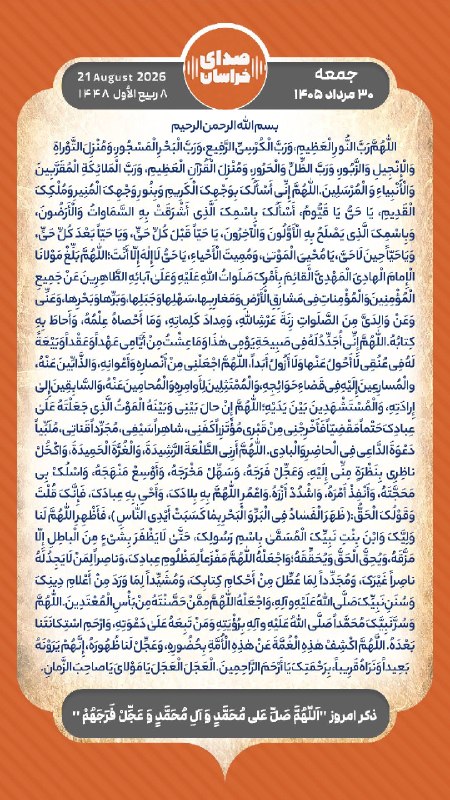 صدای
خراسان
جمعه
۳۰ مرداد ۱۴۰۵
21 August 2026
۸ ربیع الأول ۱۴۴۸
بسم الله الرحمن الرحیم
اللهُمَّ رَبَّ النُّورِ الْعَظِیمِ، وَرَبَّ الْکُرْسِیِّ الرَّفِیعِ، وَرَبَّ الْبَحْرِ الْمَسْجُورِ، وَمُنْزِلَ التَّوْراةِ
وَالْإِنْجِیلِ وَالزَّبُورِ، وَرَبَّ الظِّلِّ وَالْحَرُورِ، وَمُنْزِلَ الْقُرْآنِ الْعَظِیمِ، وَرَبَّ الْمَلائِکَةِ الْمُقَرَّبِینَ
وَالْأَنْبِیاءِ وَ الْمُرْسَلِینَ. اللهُمَّ إِنِّی أَسْأَلُکَ بِوَجْهِکَ الْکَرِیمِ وَبِنُورِ وَجْهِکَ الْمُنِیرِ وَمُلْکِکَ
الْقَدِیمِ، یَا حَیُّ یَا قَیُّومُ، أَسْأَلُکَ بِاسْمِکَ الَّذِی أَشْرَقَتْ بِهِ السَّمَاوَاتُ وَالْأَرَضُونَ،
وَبِاسْمِکَ الَّذِی یَصْلَحُ بِهِ الْأَوَّلُونَ وَالْآخِرُونَ، یَا حَیّاً قَبْلَ کُلِّ حَیٍّ، وَیَا حَیّاً بَعْدَ کُلِّ حَیٍّ،
وَیَا حَیّاً حِینَ لَا حَیَّ، یَا مُحْیِیَ الْمَوْتیٰ، وَمُمِیتَ الْأَحْیاءِ، یَا حَیُّ لَا إِلٰهَ إِلّا أَنْتَ؛ اللهُمَّ بَلِّغْ مَوْلانَا
الْإِمامَ الْهادِیَ الْمَهْدِیَّ الْقائِمَ بِأَمْرِکَ صَلَواتُ اللهِ عَلَیْهِ وَعَلَیٰ آبائِهِ الطَّاهِرِینَ عَنْ جَمِیعِ
الْمُؤْمِنِینَ وَالْمُؤْمِناتِ فِی مَشارِقِ الْأَرْضِ وَمَغارِبِها، سَهْلِها وَجَبَلِها، وَبَرِّها وَبَحْرِها، وَعَنِّی
وَعَنْ وَالِدَیَّ مِنَ الصَّلَواتِ زِنَةَ عَرْشِ اللهِ، وَمِدادَ کَلِماتِهِ، وَمَا أَحْصاهُ عِلْمُهُ، وَأَحاطَ بِهِ
کِتابُهُ. اللهُمَّ إِنِّی أُجَدِّدُ لَهُ فِی صَبِیحَةِ یَوْمِی هٰذَا وَمَا عِشْتُ مِنْ أَیَّامِی عَهْداً وَعَقْداً وَبَیْعَةً
لَهُ فِی عُنُقِی لَا أَحُولُ عَنْها وَلَا أَزُولُ أَبَداً، اللهُمَّ اجْعَلْنِی مِنْ أَنْصارِهِ وَأَعْوانِهِ، وَالذَّابِّینَ عَنْهُ،
وَالْمُسارِعِینَ إِلَیْهِ فِی قَضاءِ حَوَائِجِهِ، وَالْمُمْتَثِلِینَ لِأَوامِرِهِ وَالْمُحامِینَ عَنْهُ، وَالسَّابِقِینَ إِلَیٰ
إِرادَتِهِ، وَالْمُسْتَشْهَدِینَ بَیْنَ یَدَیْهِ؛ اللهُمَّ إِنْ حالَ بَیْنِی وَبَیْنَهُ الْمَوْتُ الَّذِی جَعَلْتَهُ عَلَیٰ
عِبادِکَ حَتْماً مَقْضِیّاً فَأَخْرِجْنِی مِنْ قَبْرِی مُؤْتَزِراً کَفَنِی، شاهِراً سَیْفِی، مُجَرِّداً قَناتِی، مُلَبِّیاً
دَعْوَةَ الدَّاعِی فِی الْحاضِرِ وَالْبادِی. اللهُمَّ أَرِنِی الطَّلْعَةَ الرَّشِیدَةَ، وَالْغُرَّةَ الْحَمِیدَةَ، وَاکْحُلْ
ناظِرِی بِنَظْرَةٍ مِنِّی إِلَیْهِ، وَعَجِّلْ فَرَجَهُ، وَسَهِّلْ مَخْرَجَهُ، وَأَوْسِعْ مَنْهَجَهُ، وَاسْلُکْ بِی
مَحَجَّتَهُ، وَأَنْفِذْ أَمْرَهُ، وَاشْدُدْ أَزْرَهُ، وَاعْمُرِ اللهُمَّ بِهِ بِلادَکَ، وَأَحْیِ بِهِ عِبادَکَ، فَإِنَّکَ قُلْتَ
وَقَوْلُکَ الْحَقُّ: (ظَهَرَ الْفَسادُ فِی الْبَرِّ وَ الْبَحْرِ بِما کَسَبَتْ أَیْدِی النَّاسِ)، فَأَظْهِرِ اللهُمَّ لَنا
وَلِیَّکَ وَابْنَ بِنْتِ نَبِیِّکَ الْمُسَمَّیٰ بِاسْمِ رَسُولِکَ، حَتَّیٰ لَا یَظْفَرَ بِشَیْءٍ مِنَ الْباطِلِ إِلّا
مَزَّقَهُ، وَیُحِقَّ الْحَقَّ وَیُحَقِّقَهُ؛ وَاجْعَلْهُ اللهُمَّ مَفْزَعاً لِمَظْلُومِ عِبادِکَ، وَناصِراً لِمَنْ لَا یَجِدُ لَهُ
ناصِراً غَیْرَکَ، وَمُجَدِّداً لِمَا عُطِّلَ مِنْ أَحْکامِ کِتابِکَ، وَمُشَیِّداً لِمَا وَرَدَ مِنْ أَعْلامِ دِینِکَ
وَسُنَنِ نَبِیِّکَ صَلَّی اللهُ عَلَیْهِ وَآلِهِ، وَاجْعَلْهُ اللهُمَّ مِمَّنْ حَصَّنْتَهُ مِنْ بَأْسِ الْمُعْتَدِینَ. اللهُمَّ
وَسُرَّ نَبِیَّکَ مُحَمَّداً صَلَّی اللهُ عَلَیْهِ وَآلِهِ بِرُؤْیَتِهِ وَمَنْ تَبِعَهُ عَلَیٰ دَعْوَتِهِ، وَارْحَمِ اسْتِکانَتَنا
بَعْدَهُ. اللهُمَّ اکْشِفْ هٰذِهِ الْغُمَّةَ عَنْ هٰذِهِ الْأُمَّةِ بِحُضُورِهِ، وَعَجِّلْ لَنا ظُهُورَهُ، إِنَّهُمْ یَرَوْنَهُ
بَعِیداً وَنَرَاهُ قَرِیباً، بِرَحْمَتِکَ یَا أَرْحَمَ الرَّاحِمِینَ. الْعَجَلَ الْعَجَلَ یَا مَوْلایَ یَا صاحِبَ الزَّمانِ.
ذکر امروز "اَللّهُمَّ صَلِّ عَلی مُحَمَّدٍ وَ آلِ مُحَمَّدٍ وَ عَجِّلْ فَرَجَهُمْ"